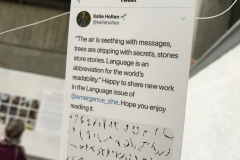 Tweet
Katie Holten
@katieholten
"The air is seething with messages,
trees are dripping with secrets, stones
store stories. Language is an
abbreviation for the world's
readability." Happy to share new work
in the Language issue of
@emergence_zine. Hope you enjoy
reading it.